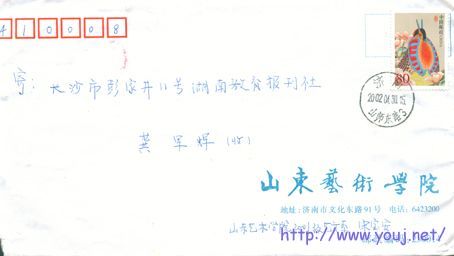 410008
中国邮政
80
济南
2002.04.30.15
山师东路3
寄：长沙市彭家井11号湖南教育报刊社
龚军辉（收）
山东藝術學院
地址：济南市文化东路91号 电话：6423200
山东艺术学院2001
http://www.youj.net/